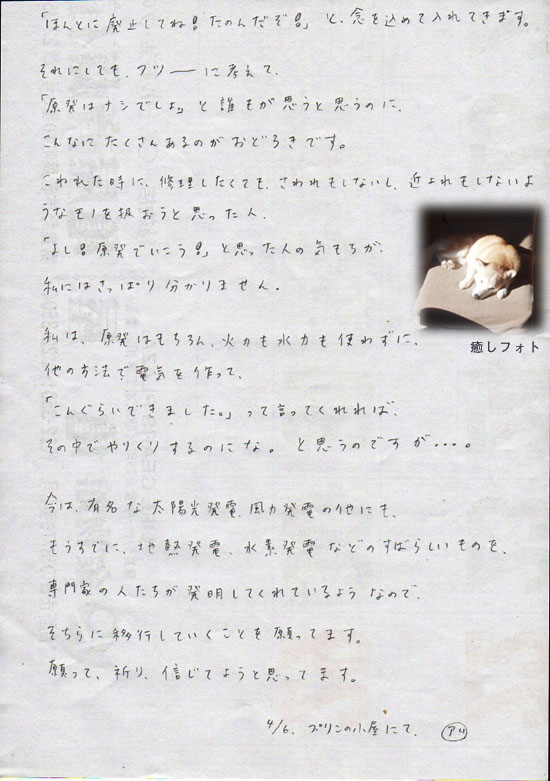 「ほんとに廃止してね!たのんだぞ!」と、念を込めて入れてきます。
それにしても、フツーに考えて、
「原発はナシでしょ」と誰もが思うと思うのに、
こんなにたくさんあるのがおどろきです。
こわれた時に、修理したくても、さわれもしないし、近よれもしないよ
うなモノを扱おうと思った人、
「よし!原発でいこう!」と思った人の気もちが、
私にはさっぱり分かりません。
癒しフォト
私は、原発はもちろん、火力も水力も使わずに、
他の方法で電気を作って、
「こんぐらいできました。」って言ってくれれば、
その中でやりくりするのにな。と思うのですが・・・。
今は、有名な太陽光発電、風力発電の他にも、
もうすでに、地熱発電、水素発電などのすばらしいものを、
専門家の人たちが発明してくれているようなので、
そちらに移行していくことを願ってます。
願って、祈り、信じてようと思ってます。
4/6. プリンの小屋にて。